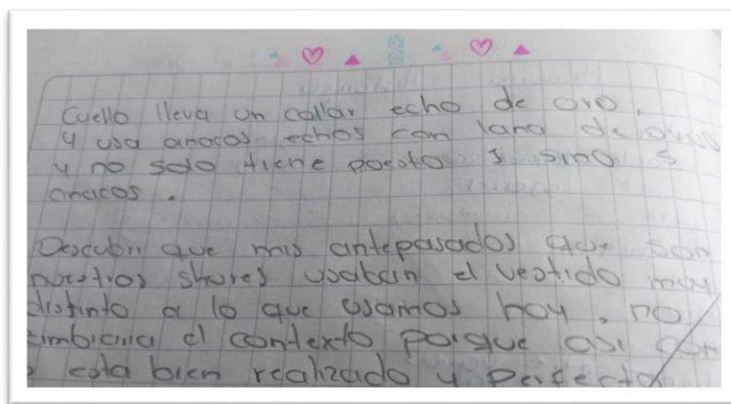 Cuello lleva un collar echo de oro,
y usa anacos echos con lana de
y no solo tiene puesto 1 sino 5
anacos.
Descubri que mis antepasados que son
nuestros shures usaban el vestido muy
distinto a lo que usamos hoy, no
cimbiaria el contexto porque asi con
esta bien realizado y perfecto